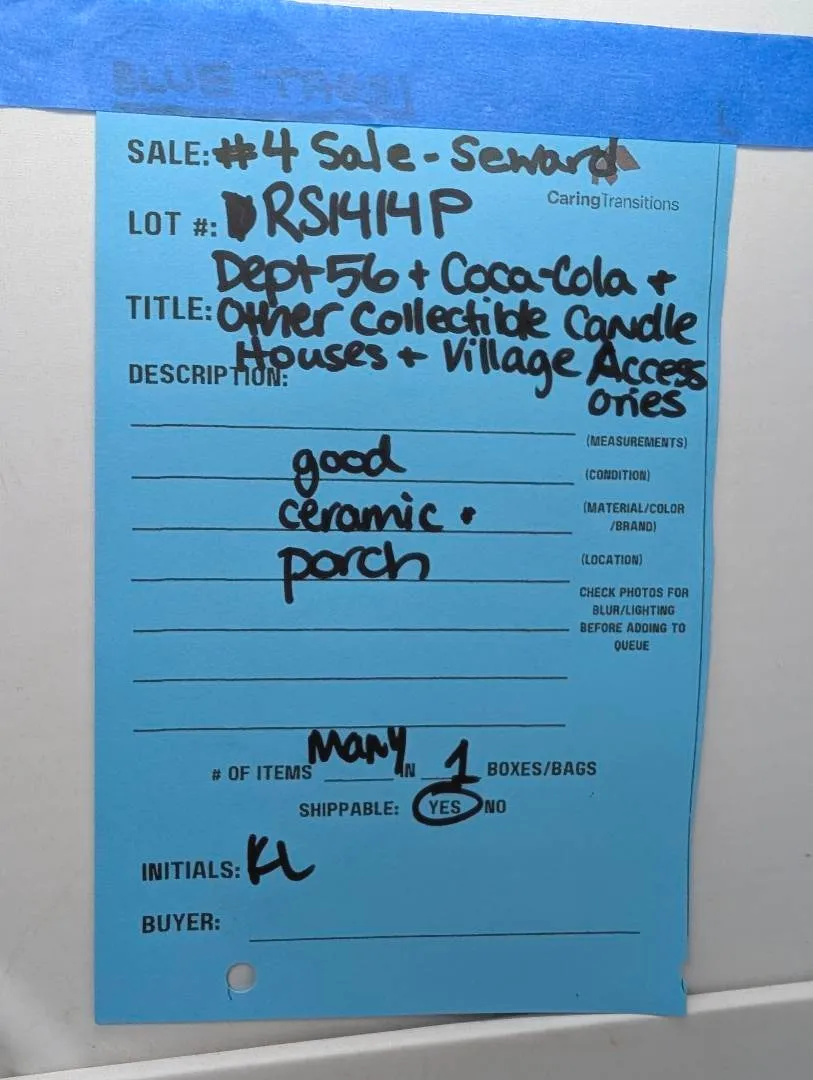 BLUE TAGS!
SALE: #4 Sale - Seward
CaringTransitions
LOT #: DRS1414P
Dept 56 + Coca-Cola +
TITLE: Other Collectible Candle
Houses + Village Access
DESCRIPTION:
ories
(MEASUREMENTS)
good
(CONDITION)
ceramic +
(MATERIAL/COLOR
/BRAND)
porch
(LOCATION)
CHECK PHOTOS FOR
BLUR/LIGHTING
BEFORE ADDING TO
QUEUE
# OF ITEMS Many IN 1 BOXES/BAGS
SHIPPABLE: YES NO
INITIALS: KL
BUYER: